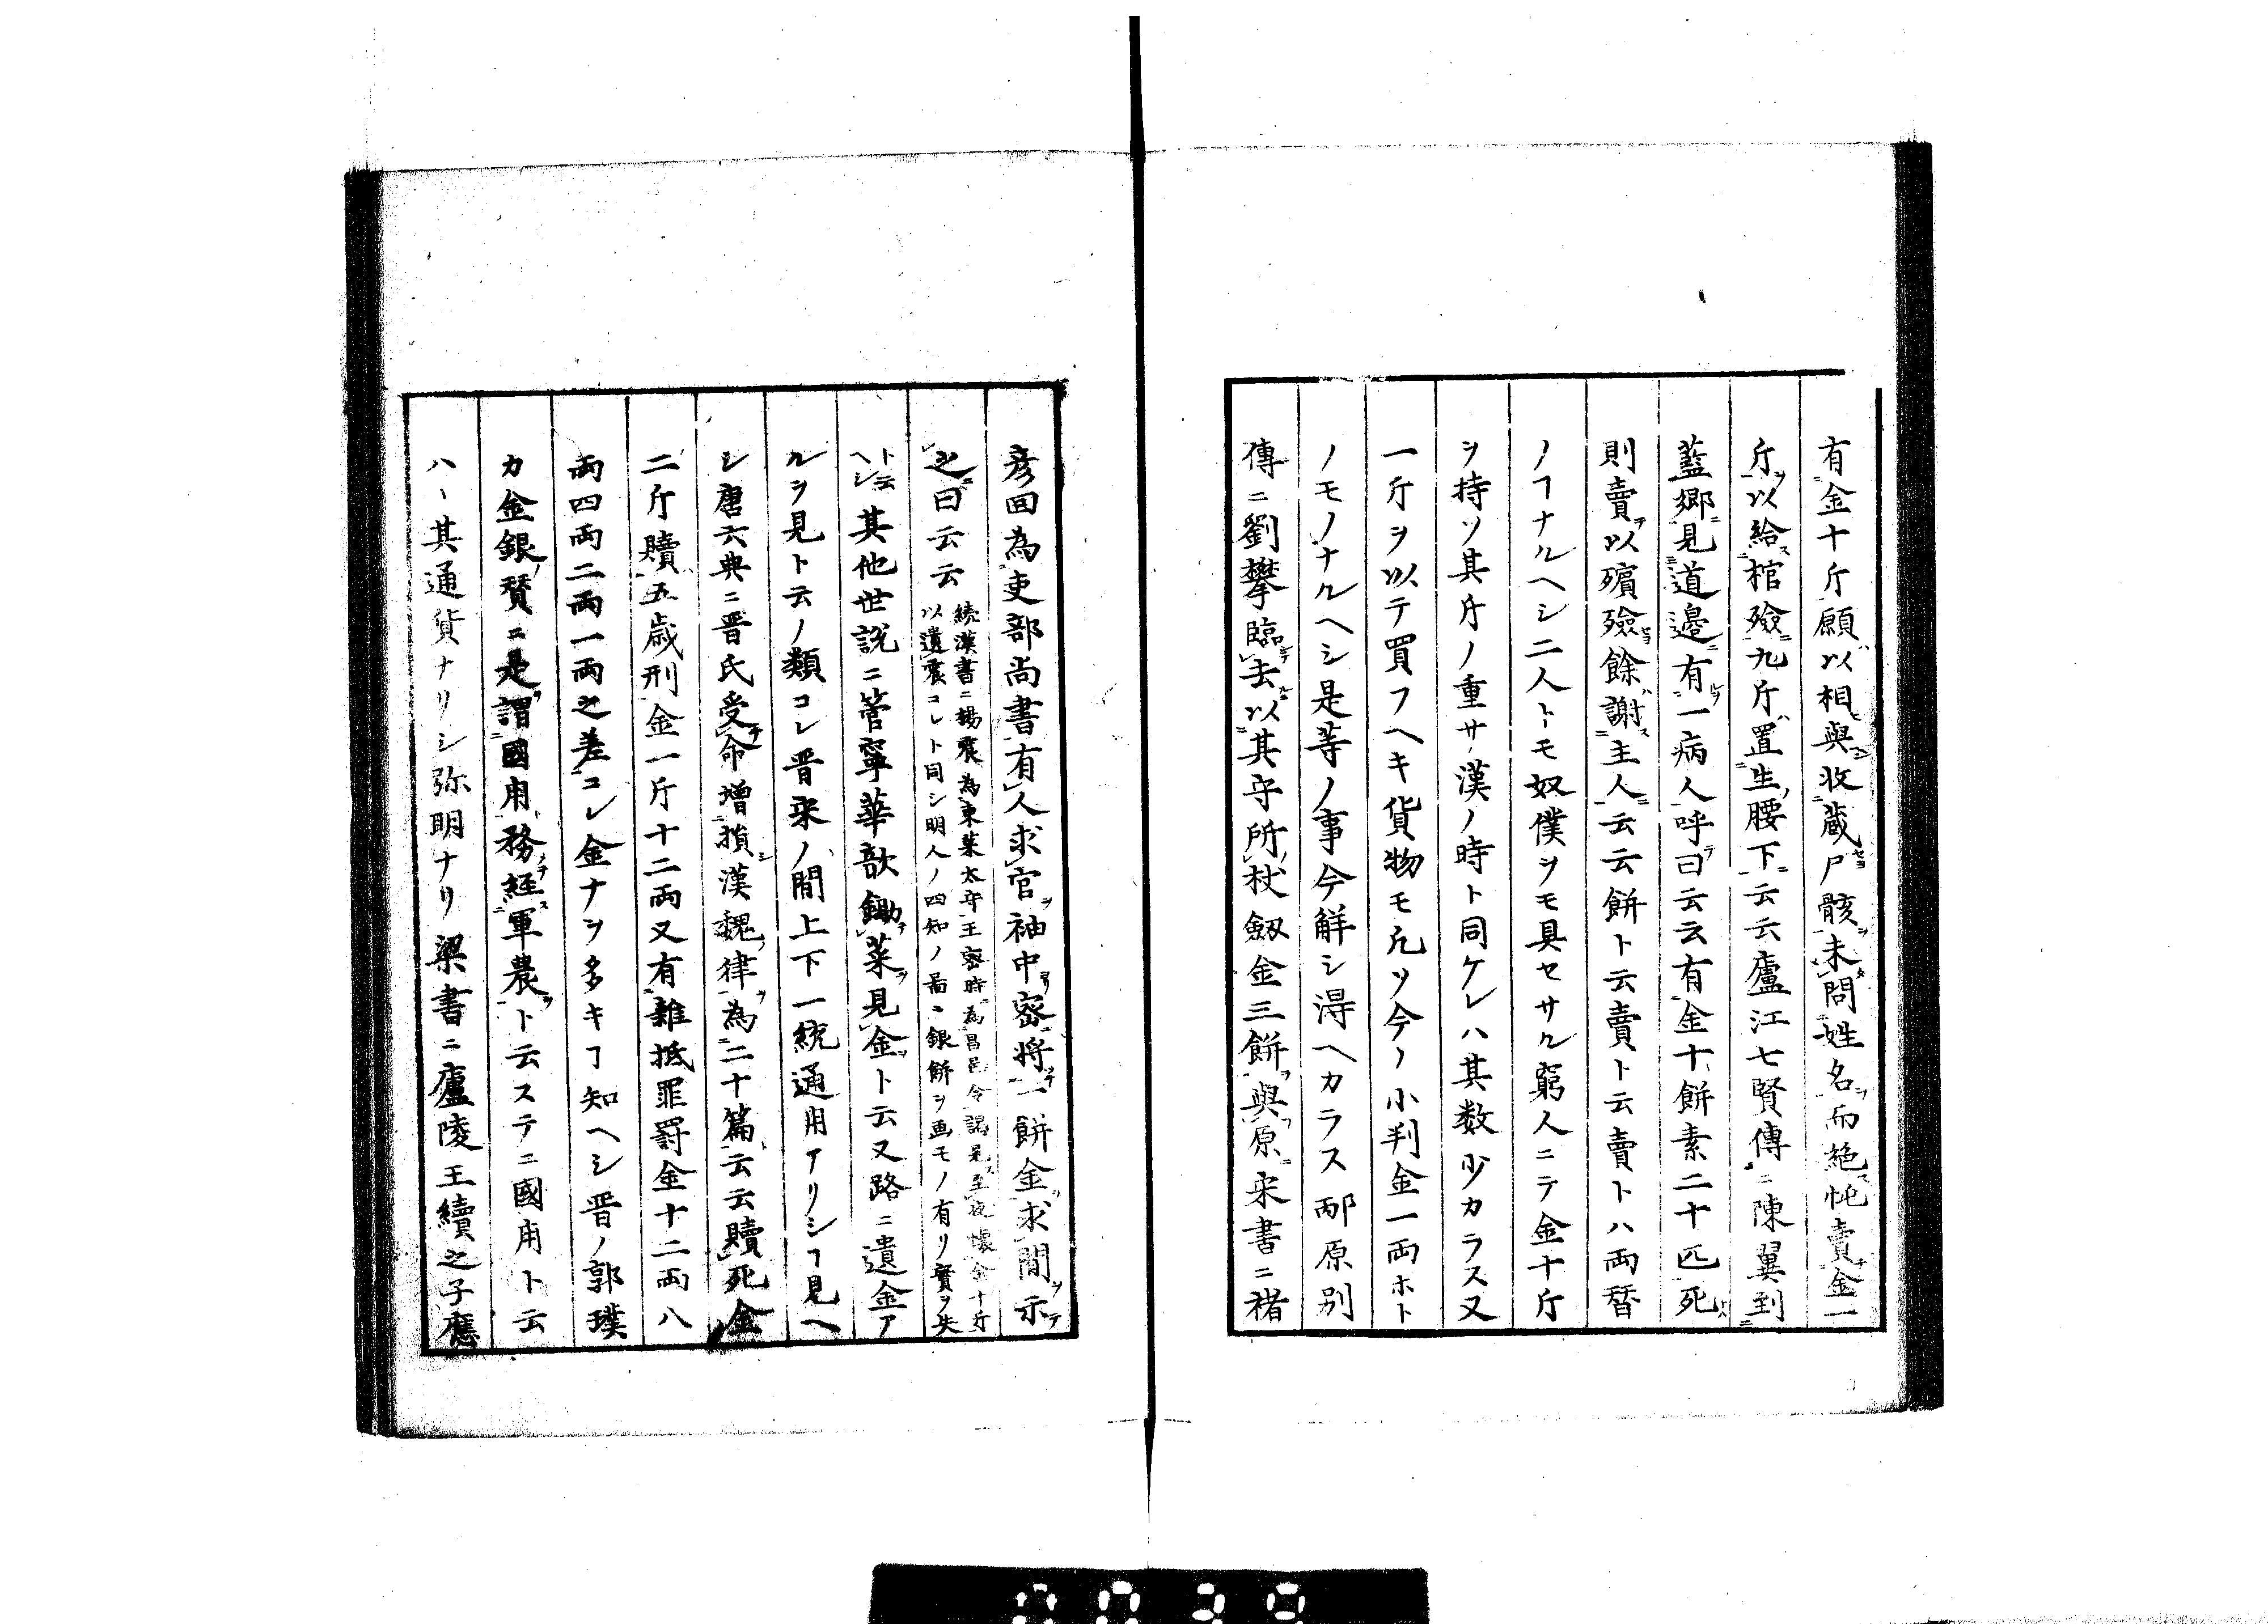 有金十斤願以相與收蔵尸骸未問姓名而絶忳賣金一
斤以給棺殮九斤置生腰下云云廬江七賢傳ニ陳翼到
藍郷見道邉有一病人呼曰云云有金十餅素二十匹死
則賣以殯殮餘謝主人云云餅ト云賣ト云賣トハ両替
ノヿナルヘシ二人トモ奴僕ヲモ具セサル窮人ニテ金十斤
ヲ持ツ其斤ノ重サ漢ノ時ト同ケレハ其数少カラス又
一斤ヲ以テ買フヘキ貨物モ凡ソ今ノ小判金一両ホト
ノモノナルヘシ是等ノ事今解シ得ヘカラス邴原别
傳ニ劉攀臨去以其守所杖劔金三餅與原宋書ニ褚
彦回為吏部尚書有人求官袖中密将一餅金求間示
之曰云云
続漢書ニ楊震為東莱太守王密時為昌邑令謁見至夜懐金十斤
以遺震コレト同シ明人ノ四知ノ畵ニ銀餅ヲ画モノ有リ實ヲ失
ト云ヘシ
其他世説ニ管寧華歆鋤菜見金ト云又路ニ遺金ア
ルヲ見ト云ノ類コレ晋宋ノ間上下一統通用アリシヿ見ヘ
シ唐六典ニ晋氏受命増損漢魏律為二十篇云云贖死金
二斤贖五歳刑金一斤十二両又有雜抵罪罰金十二両八
両四両二両一両之差コレ金ナヲ多キヿ知ヘシ晋ノ郭璞
カ金銀賛ニ是謂國用務経軍農ト云ステニ國用ト云
ハヽ其通貨ナリシ弥明ナリ梁書ニ廬陵王續之子應